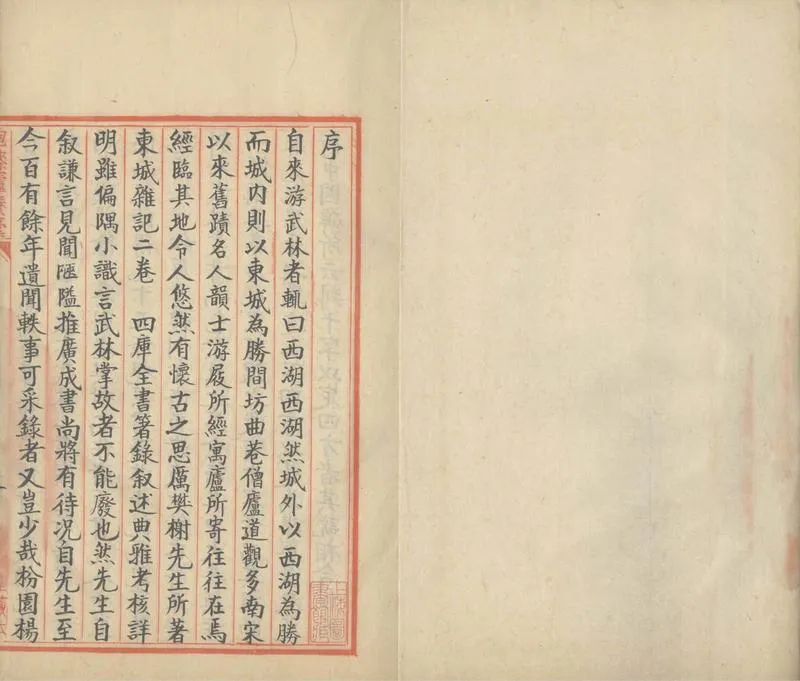 序
自來游武林者輒曰西湖西湖然城外以西湖為勝
而城內則以東城為勝間坊曲巷僧廬道觀多南宋
以來舊蹟名人韻士游屐所經寓廬所寄往往在焉
經臨其地令人悠然有懷古之思厲樊榭先生所著
東城雜記二卷 四庫全書箸錄叙述典雅考核詳
明雖偏隅小識言武林掌故者不能廢也然先生自
叙謙言見聞陋隘推廣成書尚將有待况自先生至
今百有餘年遺聞軼事可采錄者又豈少哉枌園楊